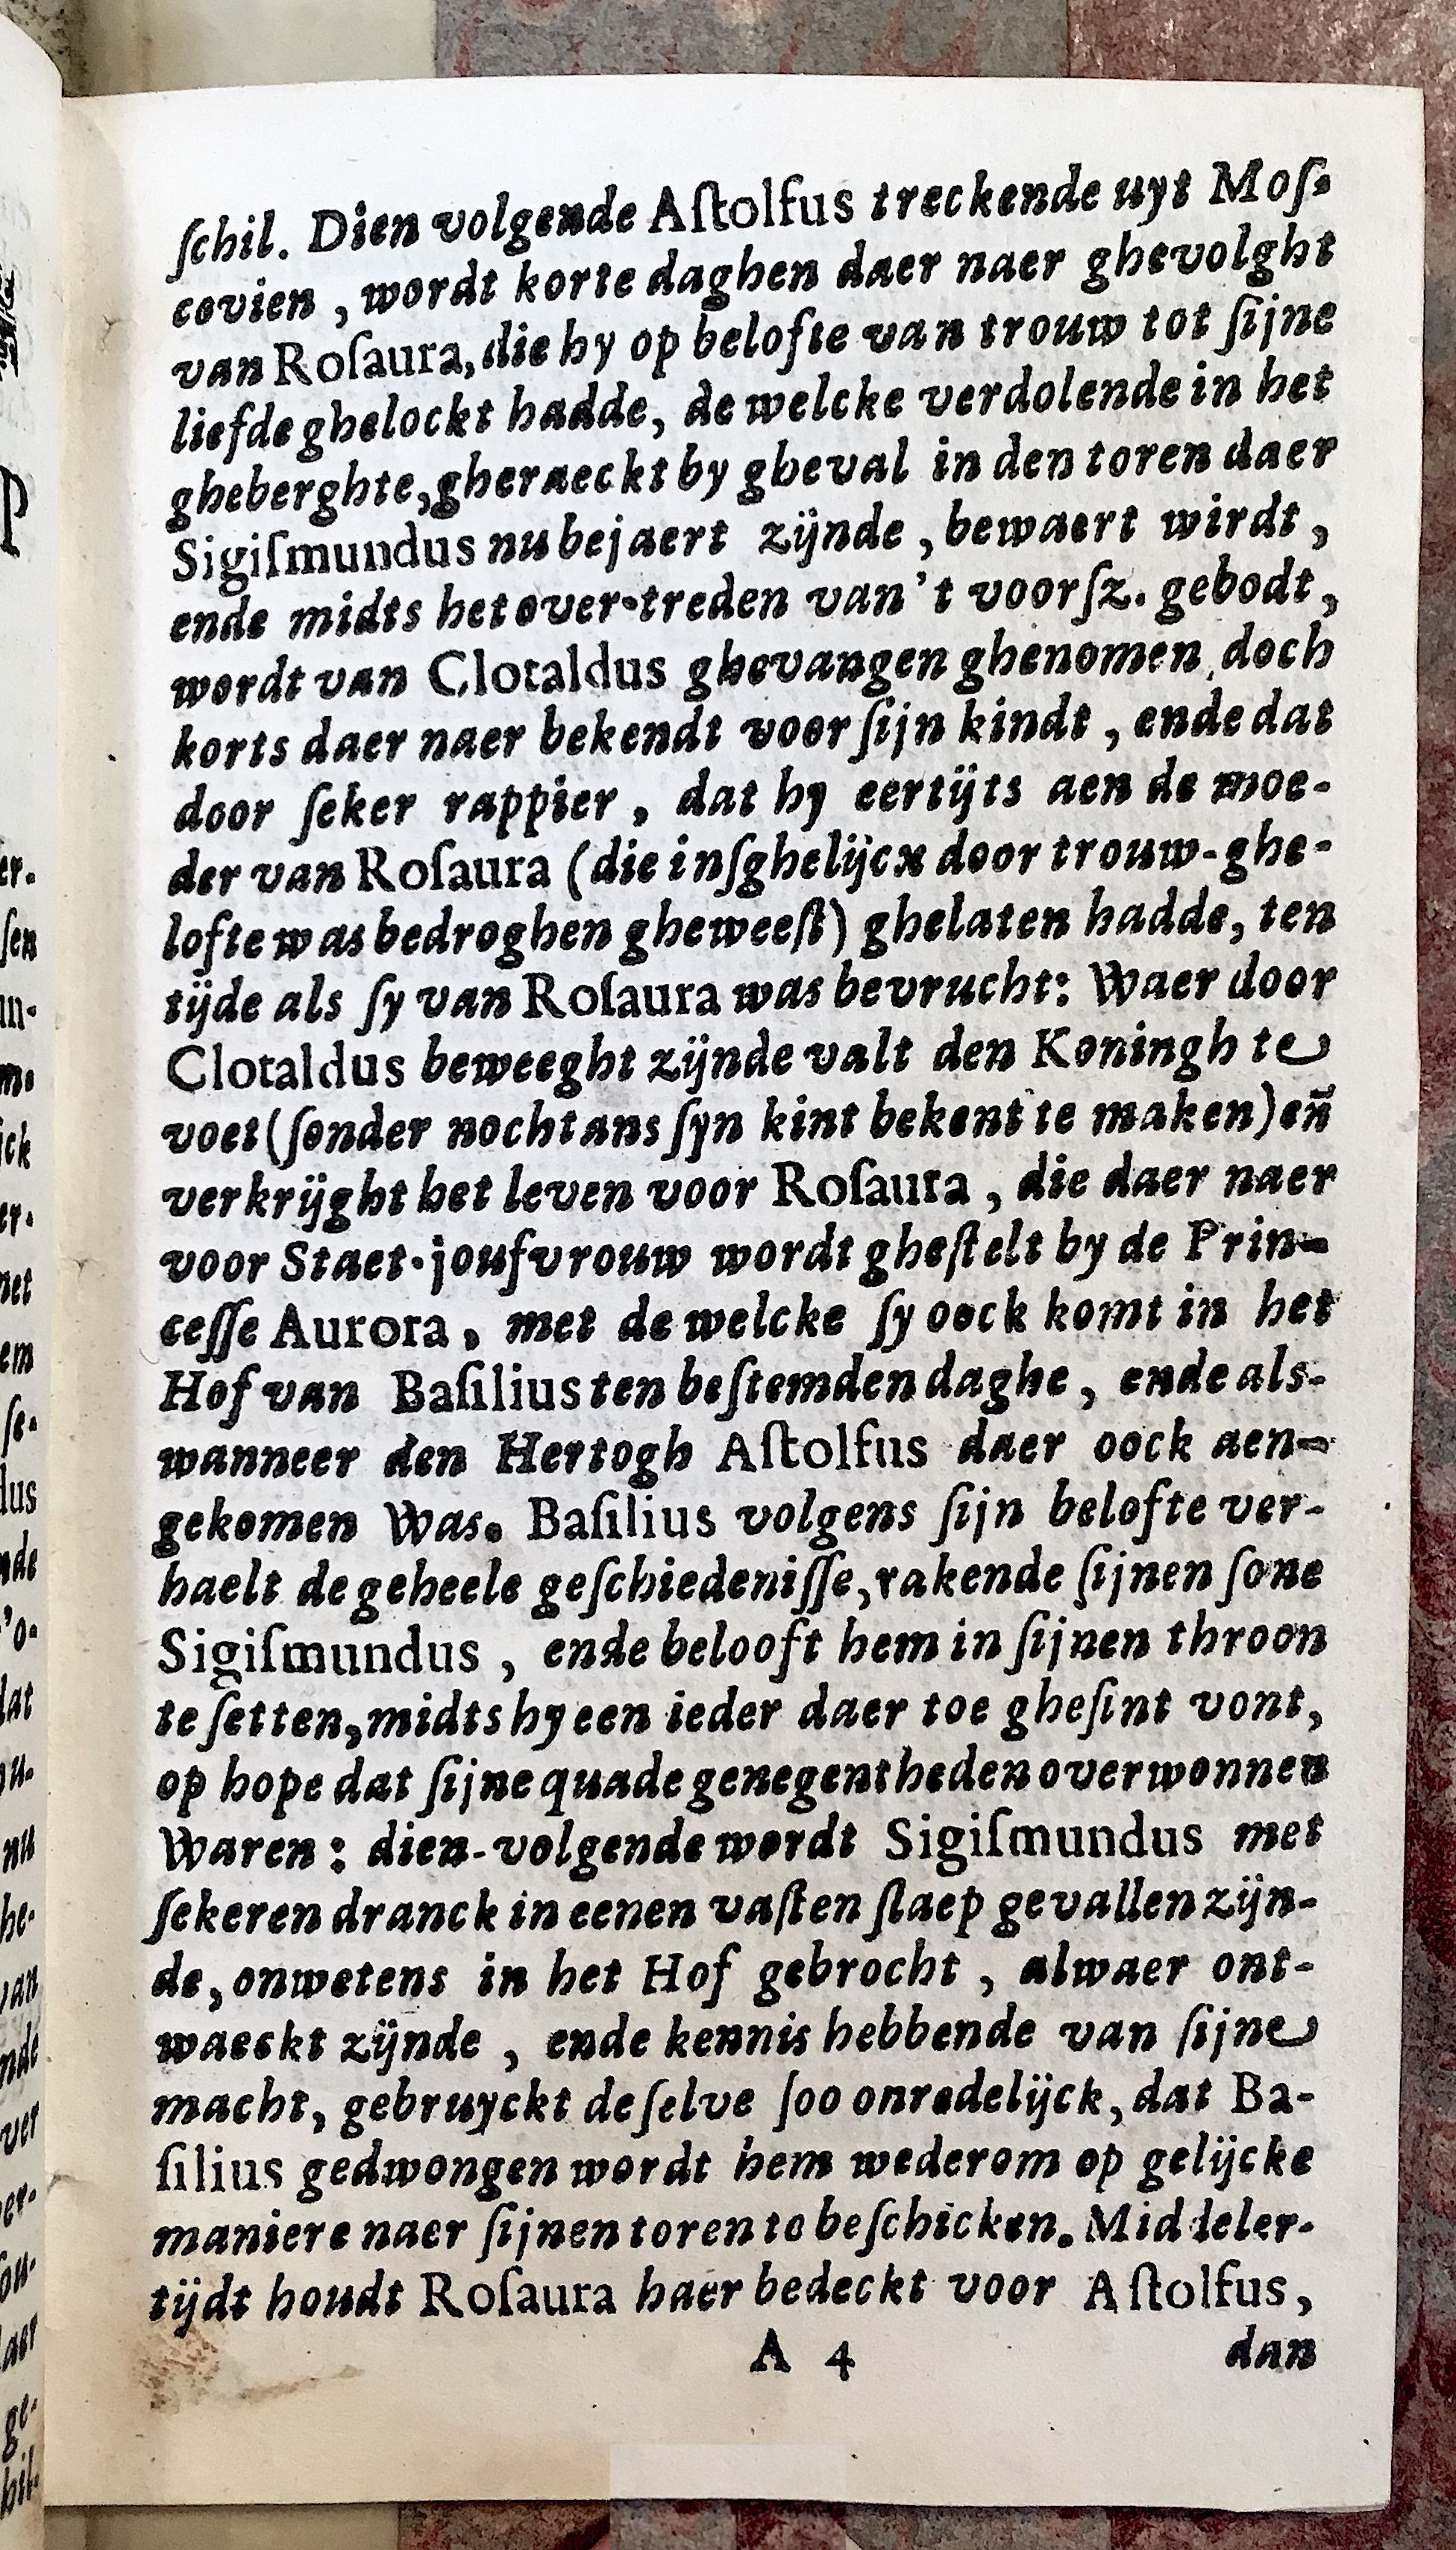 ſchil. Dien volgende Aſtolfus treckende uyt Moſ-
covien, wordt korte daghen daer naer ghevolght
van Roſaura, die hy op belofte van trouw tot ſijne
liefde ghelockt hadde, de welcke verdolende in het
gheberghte, gheraeckt by gheval in den toren daer
Sigiſmundus nu bejaert zijnde, bewaert wirdt,
ende midts het over-treden van't voorſz. gebodt,
wordt van Clotaldus ghevangen ghenomen, doch
korts daer naer bekendt voor ſijn kindt, ende dat
door ſeker rappier, dat hy eertijts aen de moe-
der van Roſaura (die inſghelijcx door trouw-ghe-
lofte was bedroghen gheweeſt) ghelaten hadde, ten
tijde als ſy van Roſaura was bevrucht: Waer door
Clotaldus beweeght zijnde valt den Koningh te
voet (ſonder nochtans ſyn kint bekent te maken) eñ
verkrijght het leven voor Roſaura, die daer naer
voor Staet-joufvrouw wordt gheſtelt by de Prin-
ceſſe Aurora, met de welcke ſy oock komt in het
Hof van Baſilius ten beſtemden daghe, ende als-
wanneer den Hertogh Aſtolfus daer oock aen-
gekomen Was. Baſilius volgens ſijn belofte ver-
haelt de geheele geſchiedeniſſe, rakende ſijnen ſone
Sigiſmundus, ende belooft hem in ſijnen throon
te ſetten, midts hy een ieder daer toe gheſint vont,
op hope dat ſijne quade genegentheden overwonnen
Waren: dien-volgende wordt Sigiſmundus met
ſekeren dranck in eenen vaſten ſlaep gevallen zijn-
de, onwetens in het Hof gebrocht, alwaer ont-
waeckt zijnde, ende kennis hebbende van ſijne
macht, gebruyckt de ſelve ſoo onredelijck, dat Ba-
ſilius gedwongen wordt hem wederom op gelijcke
maniere naer ſijnen toren te beſchicken. Middeler-
tijdt houdt Roſaura haer bedeckt voor Aſtolfus,
A 4 dan